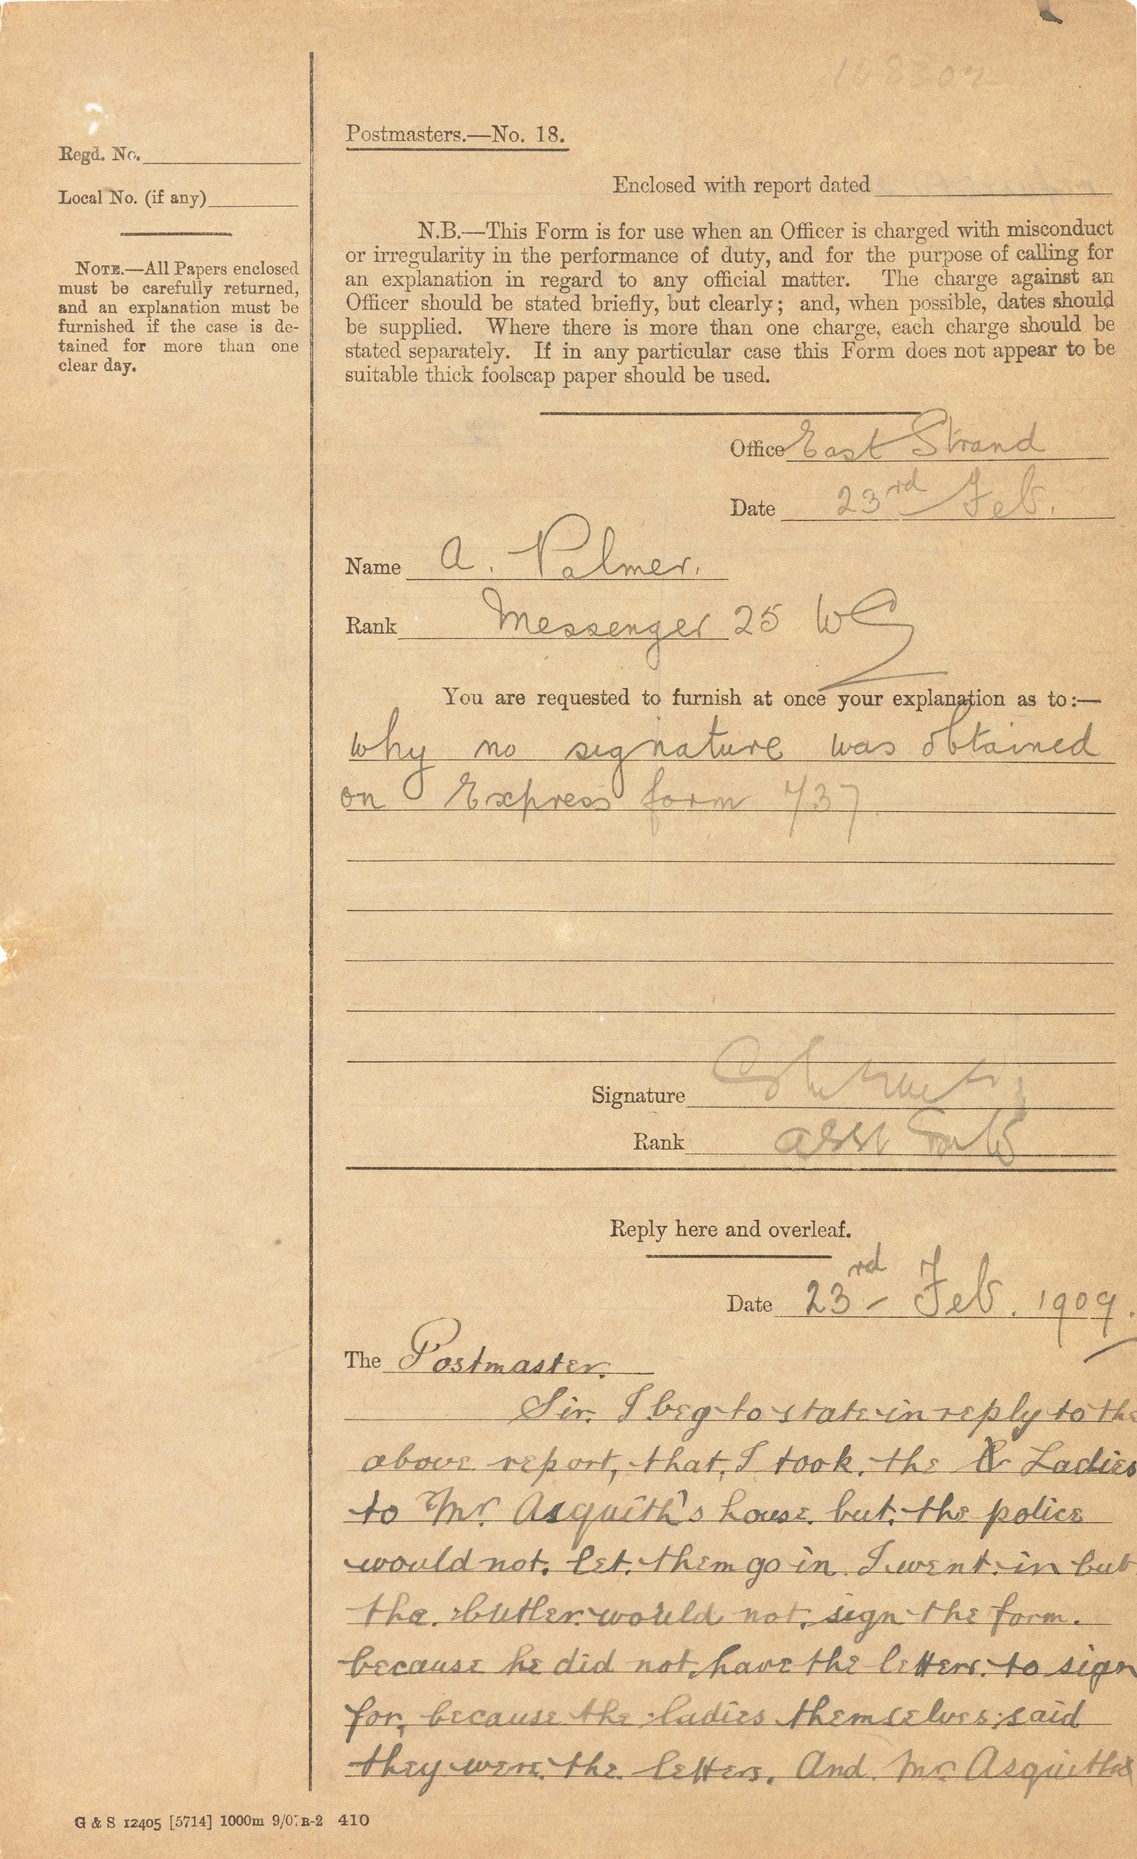 Postmasters.—No. 18.
Regd. No.
Local No. (if any)
NOTE.—All Papers enclosed
must be carefully returned,
and an explanation must be
furnished if the case is de-
tained for more than one
clear day.
Enclosed with report dated
N.B.—This Form is for use when an Officer is charged with misconduct
or irregularity in the performance of duty, and for the purpose of calling for
an explanation in regard to any official matter. The charge against an
Officer should be stated briefly, but clearly; and, when possible, dates should
be supplied. Where there is more than one charge, each charge should be
stated separately. If in any particular case this Form does not appear to be
suitable thick foolscap paper should be used.
Office East Strand
Date 23rd Feb.
Name A. Palmer.
Rank Messenger 25 W
You are requested to furnish at once your explanation as to:—
why no signature was obtained
on Express form 737
Signature
Rank Asst
Reply here and overleaf.
Date 23rd Feb. 1909.
The Postmaster.
Sir. I beg to state in reply to the
above report, that, I took. the Ladies
to Mr. Asquith's house. but. the police
would not. let. them go in. I went. in but
the. butler would not. sign the form.
because he did not, have the letters. to sign
for, because the ladies themselves said
they were. the letters. And. Mr. Asquiths
G & S 12405 [5714] 1000m 9/07 R-2 410